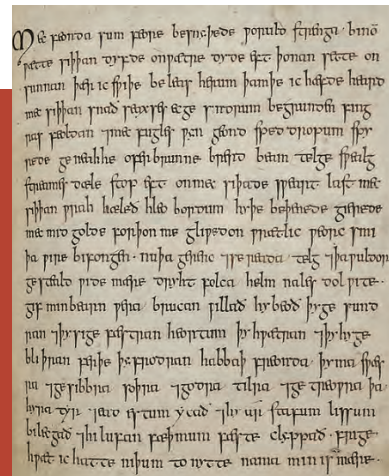 Mec feonda sum feore besnyþede ƿoruld strenga · binō
ƿætte siþþan dyfde on ƿætre dyde eft þonan sette on
sunnan þær ic sƿiþe beleas herum þam þe ic hæfde heard
mec siþþan snað seaxses ecg sindrum begrunden fing
ras feoldan ⁊ mec fugles ƿyn geond sped dropum spy
rede geneahhe ofer brunne brerd beam telge sƿealg
streames dæle stop eft on mec siþade sƿeart last mec
siþþan ƿrah hæleð hleo bordum hyþe beþenede gierede
mec mid golde forþon me gliƿedon ƿrætlic ƿeorc smi
þa ƿire bifongen · nu þa gereno ⁊ se reada telg ⁊ þa ƿuldor
gesteald ƿide mære dryht folca helm nales dol ƿite ·
gif min bearn ƿera brucan ƿillað hy beoð þy gesund
ran ⁊ þy sigefæstran heortum þy hƿætran ⁊ þy hyge
bliþran ferþe þy frodran habbaþ freonda þy ma sƿæs
ra ⁊ gesibbra soþra ⁊ godra tilra ⁊ getreoƿra þa
hyra tyr ⁊ ead estum ycað ⁊ hy ar stafum lissum
bilecgað ⁊ hi lufan fæþmum fæste clyppað · frige
hƿæt ic hatte niþum to nytte nama min is mære ·